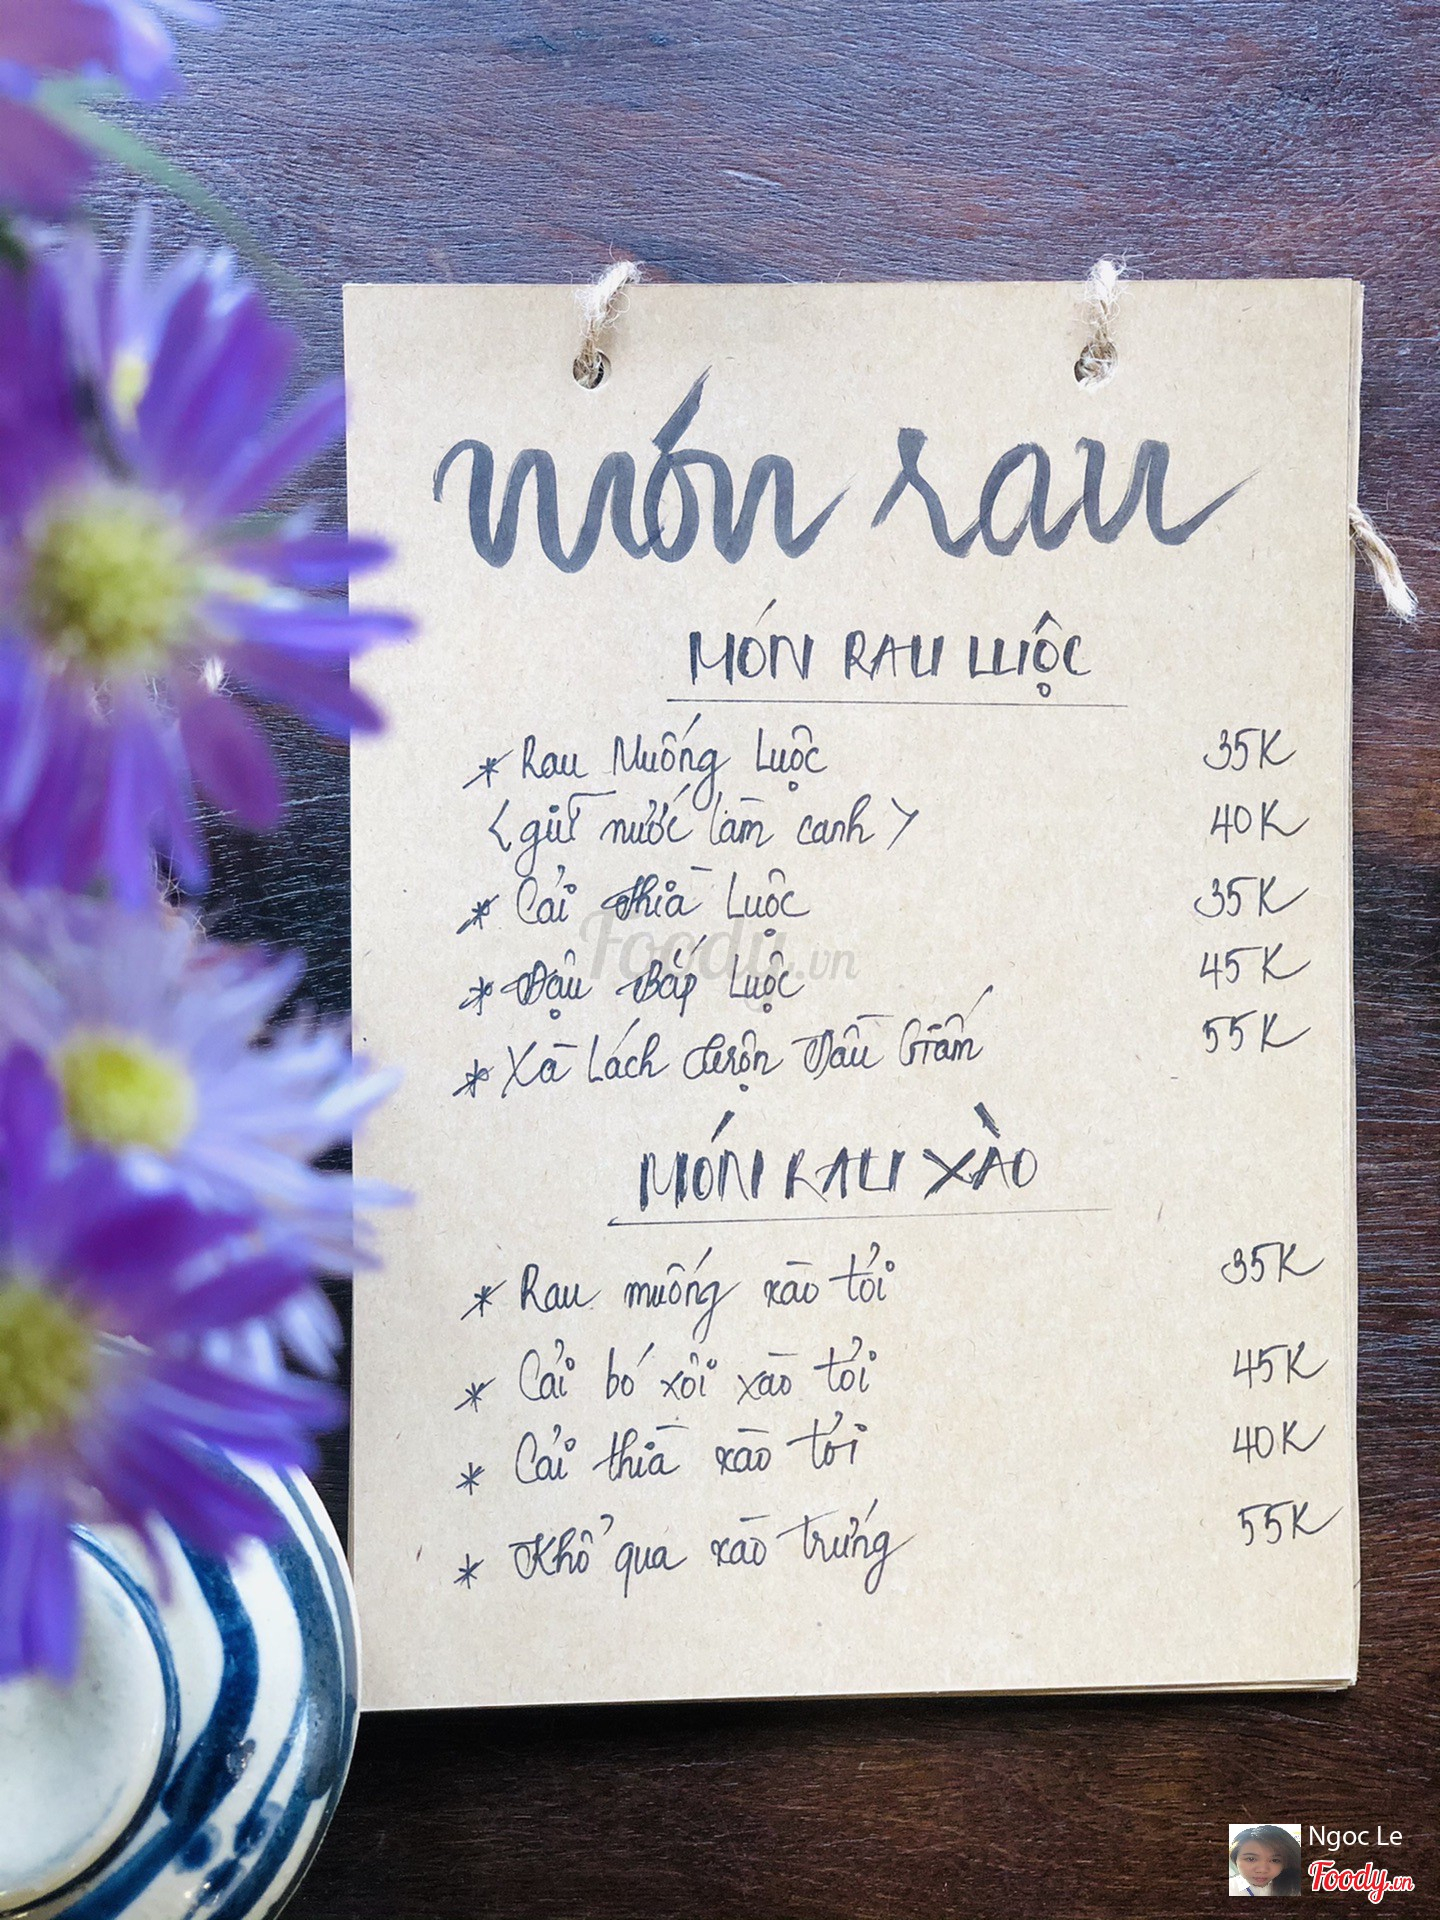 món rau
MÓN RAU LUỘC
* Rau Muống Luộc 35K
<giữ nước làm canh> 40K
* Cải thìa Luộc 35K
* Đậu Bắp Luộc 45K
* Xà Lách trộn Dầu Giấm 55K
MÓN RAU XÀO
* Rau muống xào tỏi 35K
* Cải bó xôi xào tỏi 45K
* Cải thìa xào tỏi 40K
* Khổ qua xào trứng 55K
Foody.vn
Ngoc Le
Foody.vn